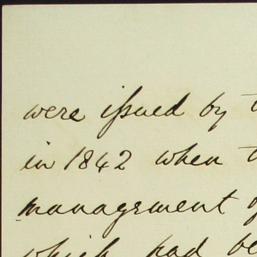 were issued by t
in 1842 when t
management o
which had be